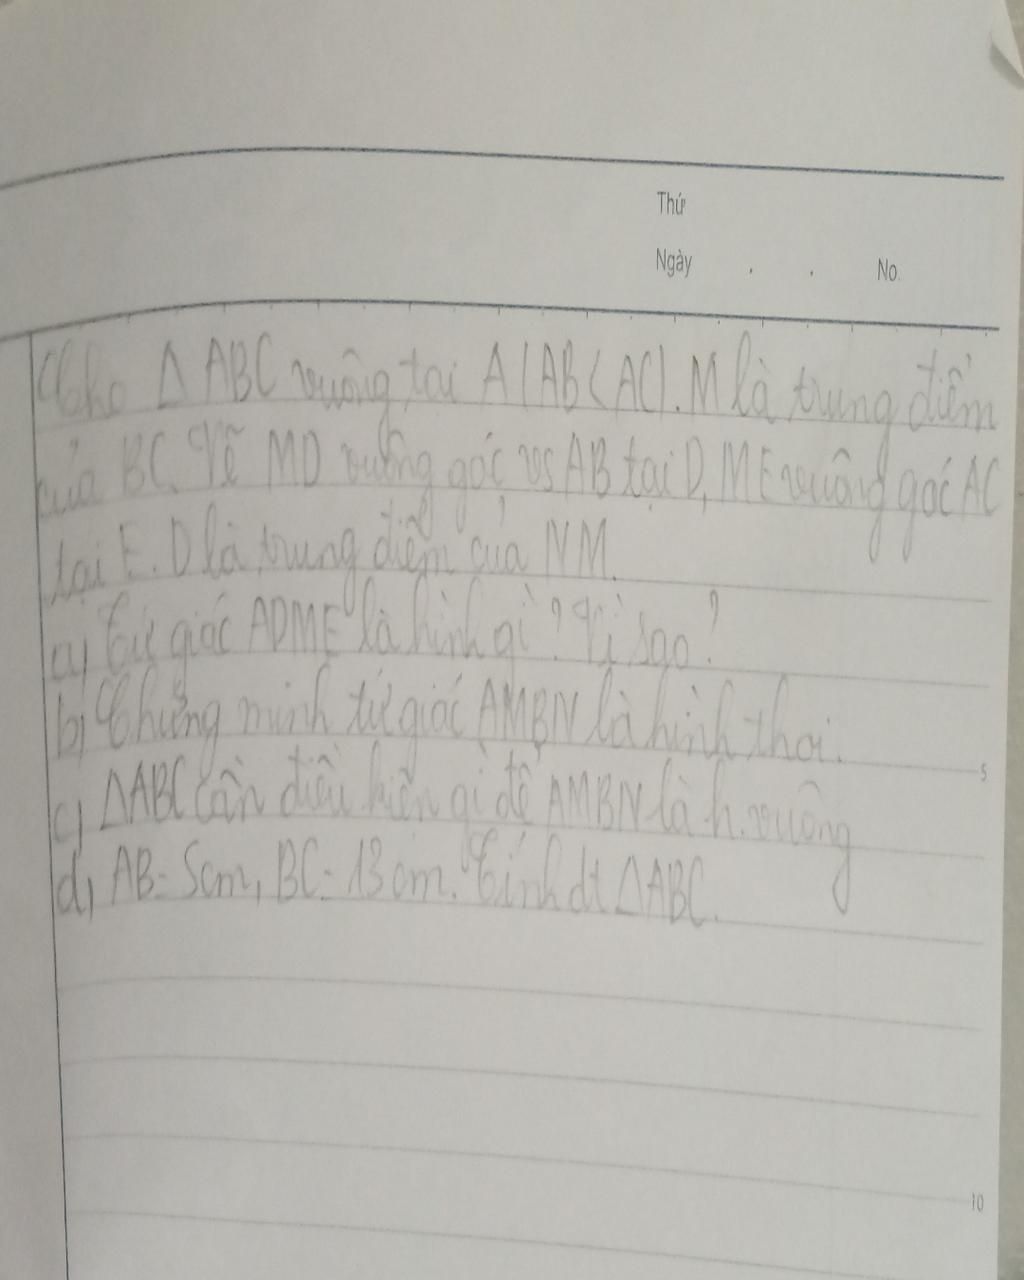 Thứ
Ngày . . No.
Cho Δ ABC vuông tại A (AB < AC). M là trung điểm
của BC. Vẽ MD vuông góc vs AB tại D, ME vuông góc AC
tại E. D là trung điểm của NM.
a) Tứ giác ADME là hình gì? Vì sao?
b) Chứng minh tứ giác AMBN là hình thoi.
c) ΔABC cần điều kiện gì để AMBN là h. vuông
d) AB = 5cm, BC = 13 cm. Tính dt ΔABC.
5
10